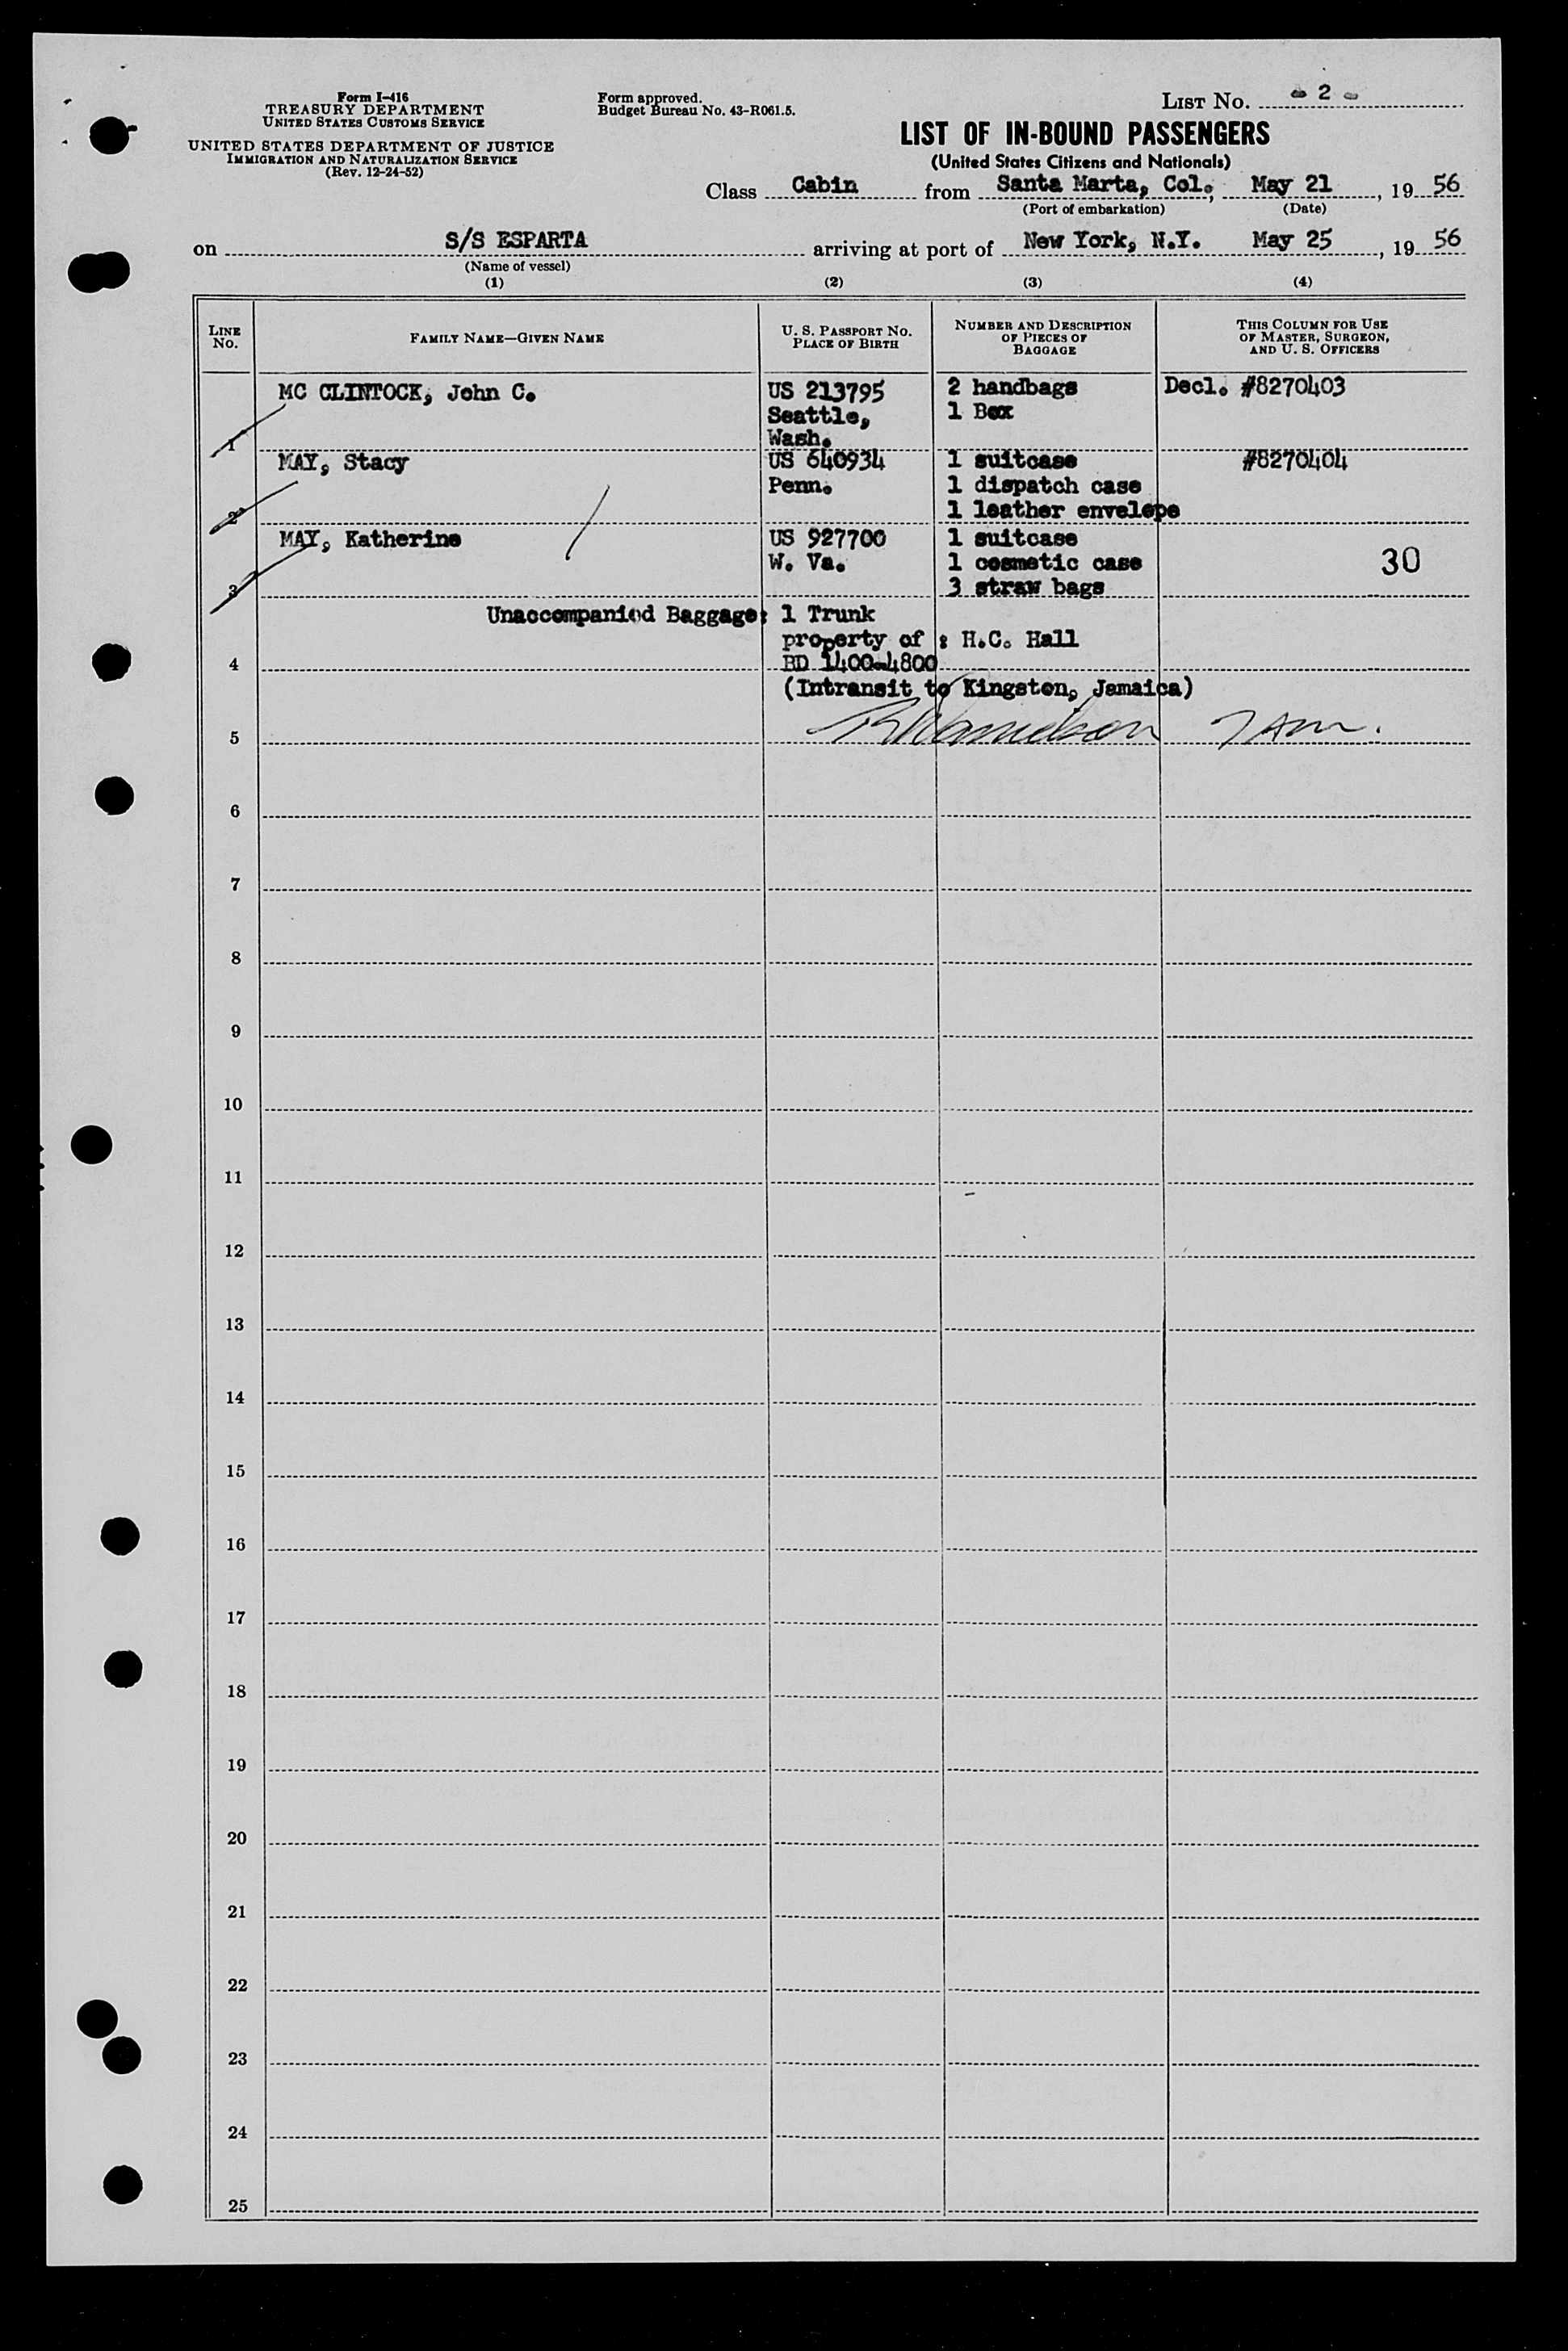 Form I-416
TREASURY DEPARTMENT
UNITED STATES CUSTOMS SERVICE
UNITED STATES DEPARTMENT OF JUSTICE
IMMIGRATION AND NATURALIZATION SERVICE
(Rev. 12-24-52)
Form approved.
Budget Bureau No. 43-R061.5.
LIST No. - 2 -
LIST OF IN-BOUND PASSENGERS
(United States Citizens and Nationals)
Class Cabin from Santa Marta, Col., May 21, 19 56
(Port of embarkation) (Date)
on S/S ESPARTA arriving at port of New York, N.Y. May 25, 19 56
(Name of vessel)
(1) (2) (3) (4)
LINE No.
FAMILY NAME—GIVEN NAME
U. S. PASSPORT No.
PLACE OF BIRTH
NUMBER AND DESCRIPTION
OF PIECES OF
BAGGAGE
THIS COLUMN FOR USE
OF MASTER, SURGEON,
AND U. S. OFFICERS
MC CLINTOCK, John C. US 213795 2 handbags Decl. #8270403
Seattle, 1 Box
1 Wash.
MAY, Stacy US 640934 1 suitcase #8270404
Penn. 1 dispatch case
2 1 leather envelope
MAY, Katherine US 927700 1 suitcase
W. Va. 1 cosmetic case 30
3 3 straw bags
Unaccompanied Baggage: 1 Trunk
property of : H.C. Hall
4 BD 1400-4800
(Intransit to Kingston, Jamaica)
5
6
7
8
9
10
11
12
13
14
15
16
17
18
19
20
21
22
23
24
25